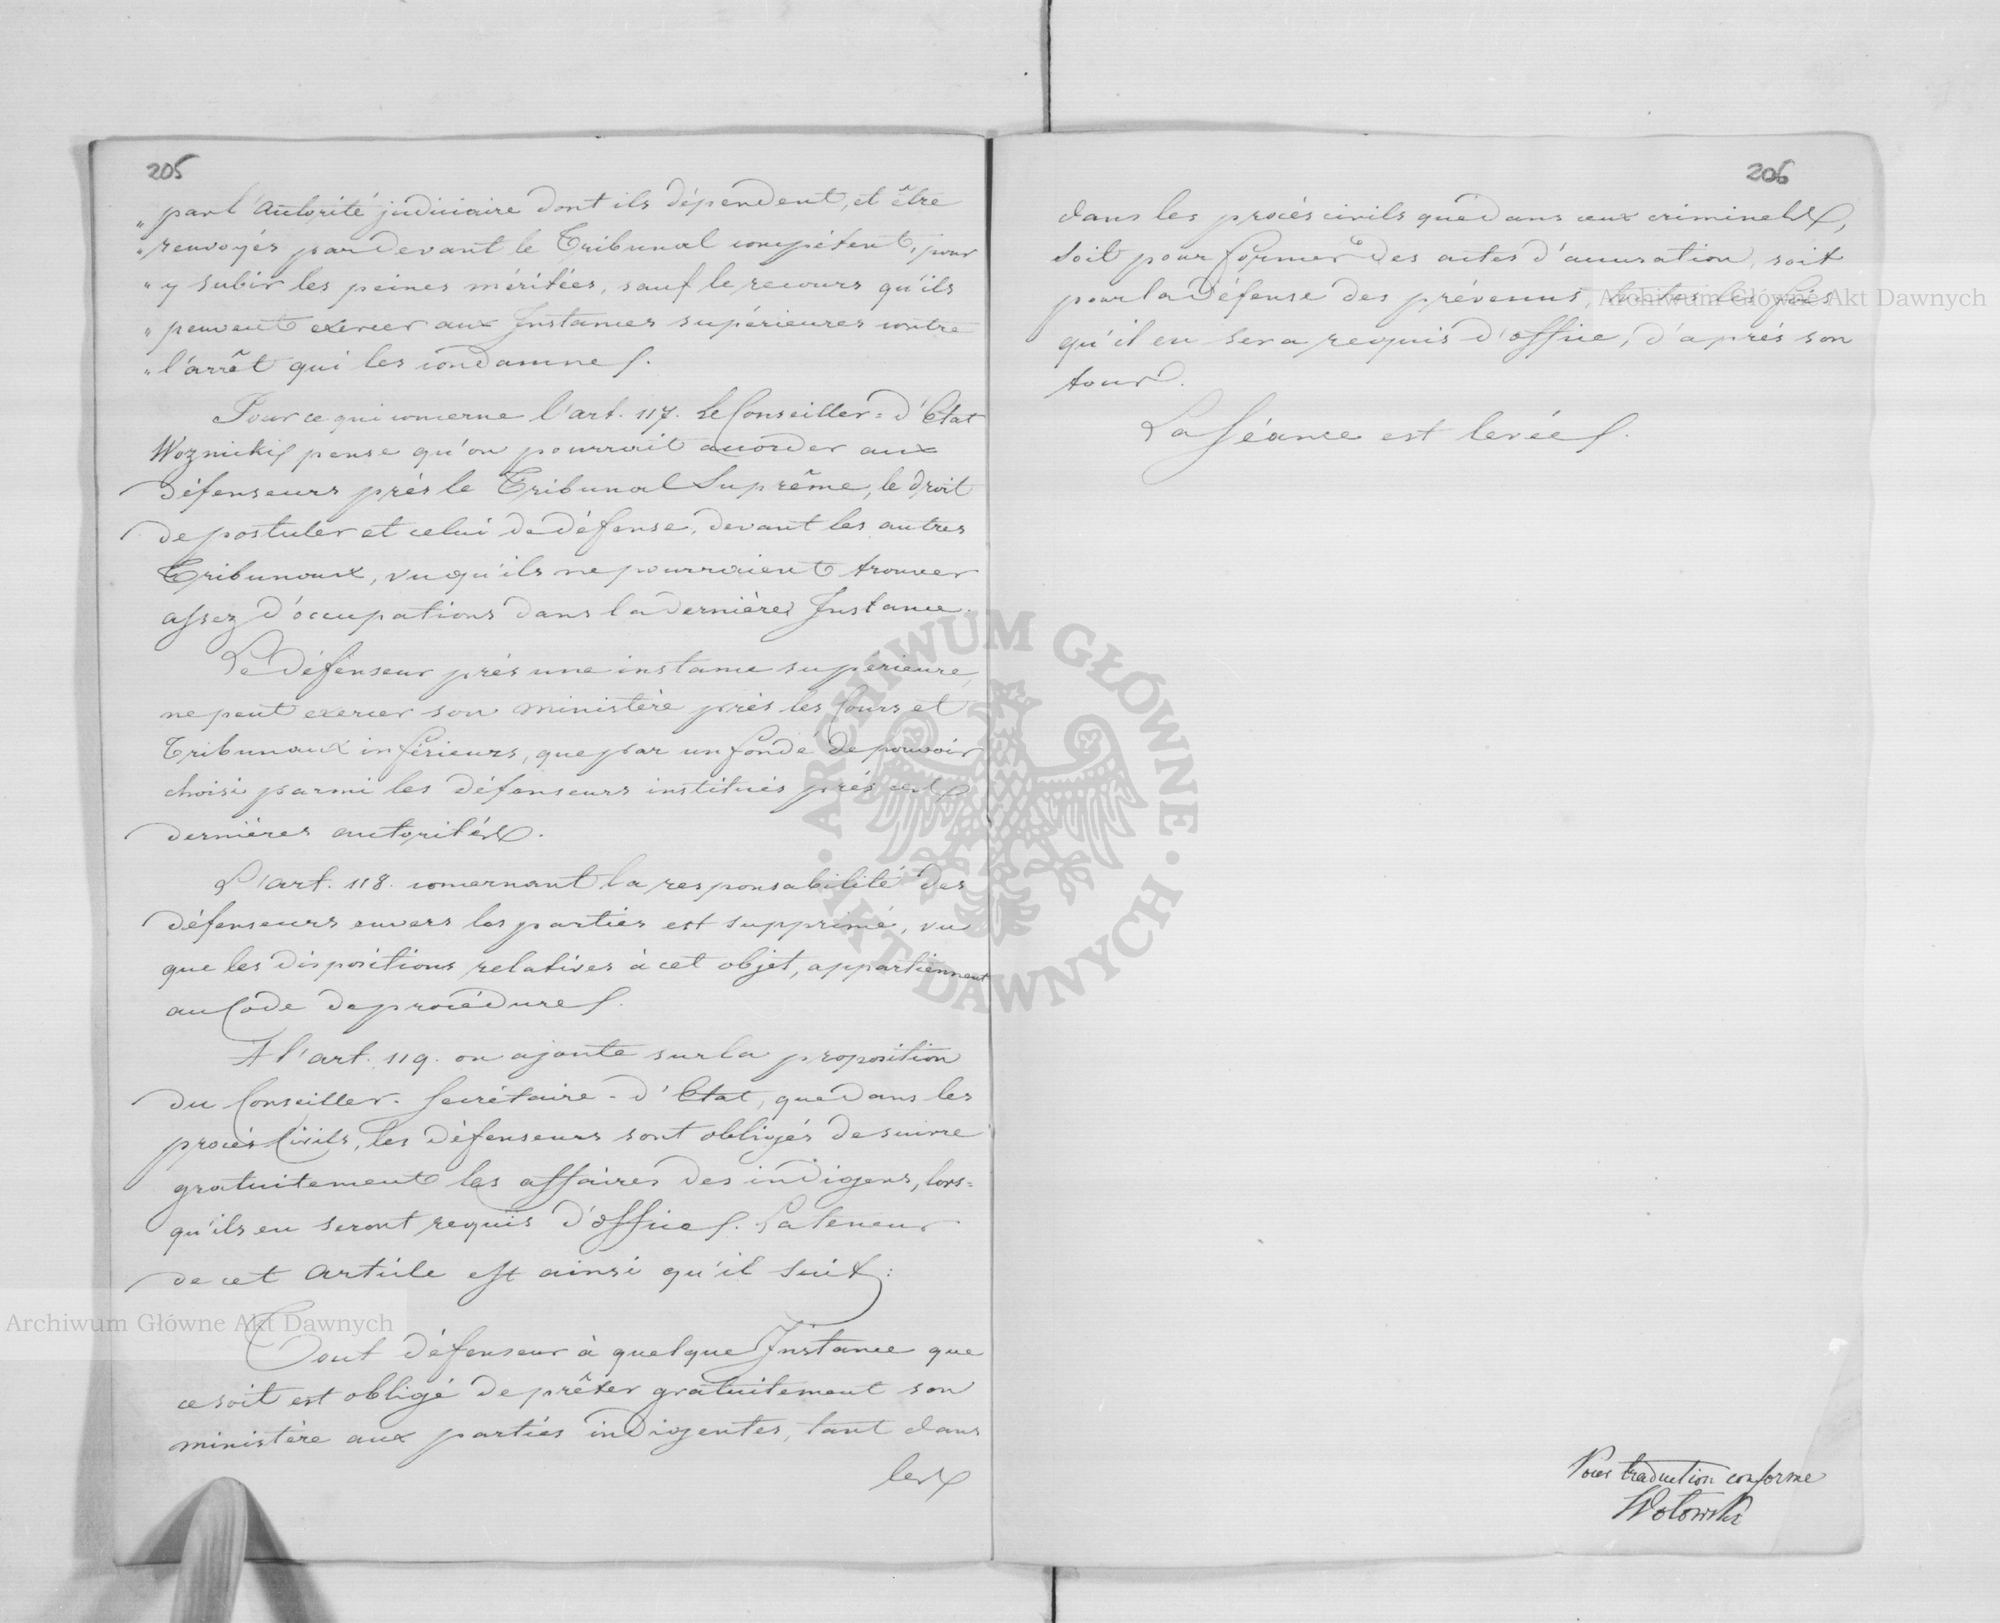 205
" par l'Autorité judiciaire dont ils dépendent, et être
" renvoyés pardevant le Tribunal compétent, pour
" y subir les peines méritées, sauf le recours qu'ils
" peuvent exercer aux Instances supérieures contre
" l'arrêt qui les condamne.
Pour ce qui concerne l'art. 117. Le Conseiller = d'Etat
Woznicki pense qu'on pourrait accorder aux
défenseurs près le Tribunal Suprême, le droit
de postuler et celui de défense, devant les autres
Tribunaux, vu qu'ils ne pourraient trouver
assez d'occupations dans la dernière Instance.
Le défenseur près une instance supérieure,
ne peut exercer son ministère près les Cours et
Tribunaux inférieurs, que par un fondé de pouvoir
choisi parmi les défenseurs institués près ces
dernières autorités.
L'art. 118. concernant la responsabilité des
défenseurs envers les parties est supprimé, vu
que les dispositions relatives à cet objet, appartiennent
au Code de procédure.
A l'art. 119. on ajoute sur la proposition
du Conseiller - Secrétaire - d'Etat, que dans les
procès Civils, les défenseurs sont obligés de suivre
gratuitement les affaires des indigens, lors=
qu'ils en seront requis d'office. La teneur
de cet Article est ainsi qu'il suit:
Tout défenseur à quelque Instance que
ce soit est obligé de prêter gratuitement son
ministère aux parties indigentes, tant dans
les
206
dans les procès civils que dans ceux criminels,
soit pour former des actes d'accusation, soit
pour la défense des prévenus, toutes les fois
qu'il en sera requis d'office, d'après son
tour.
La Séance est levée.
Pour traduction conforme
Wolowski
Archiwum Główne Akt Dawnych
Archiwum Główne Akt Dawnych
ARCHIWUM GŁÓWNE
AKT DAWNYCH